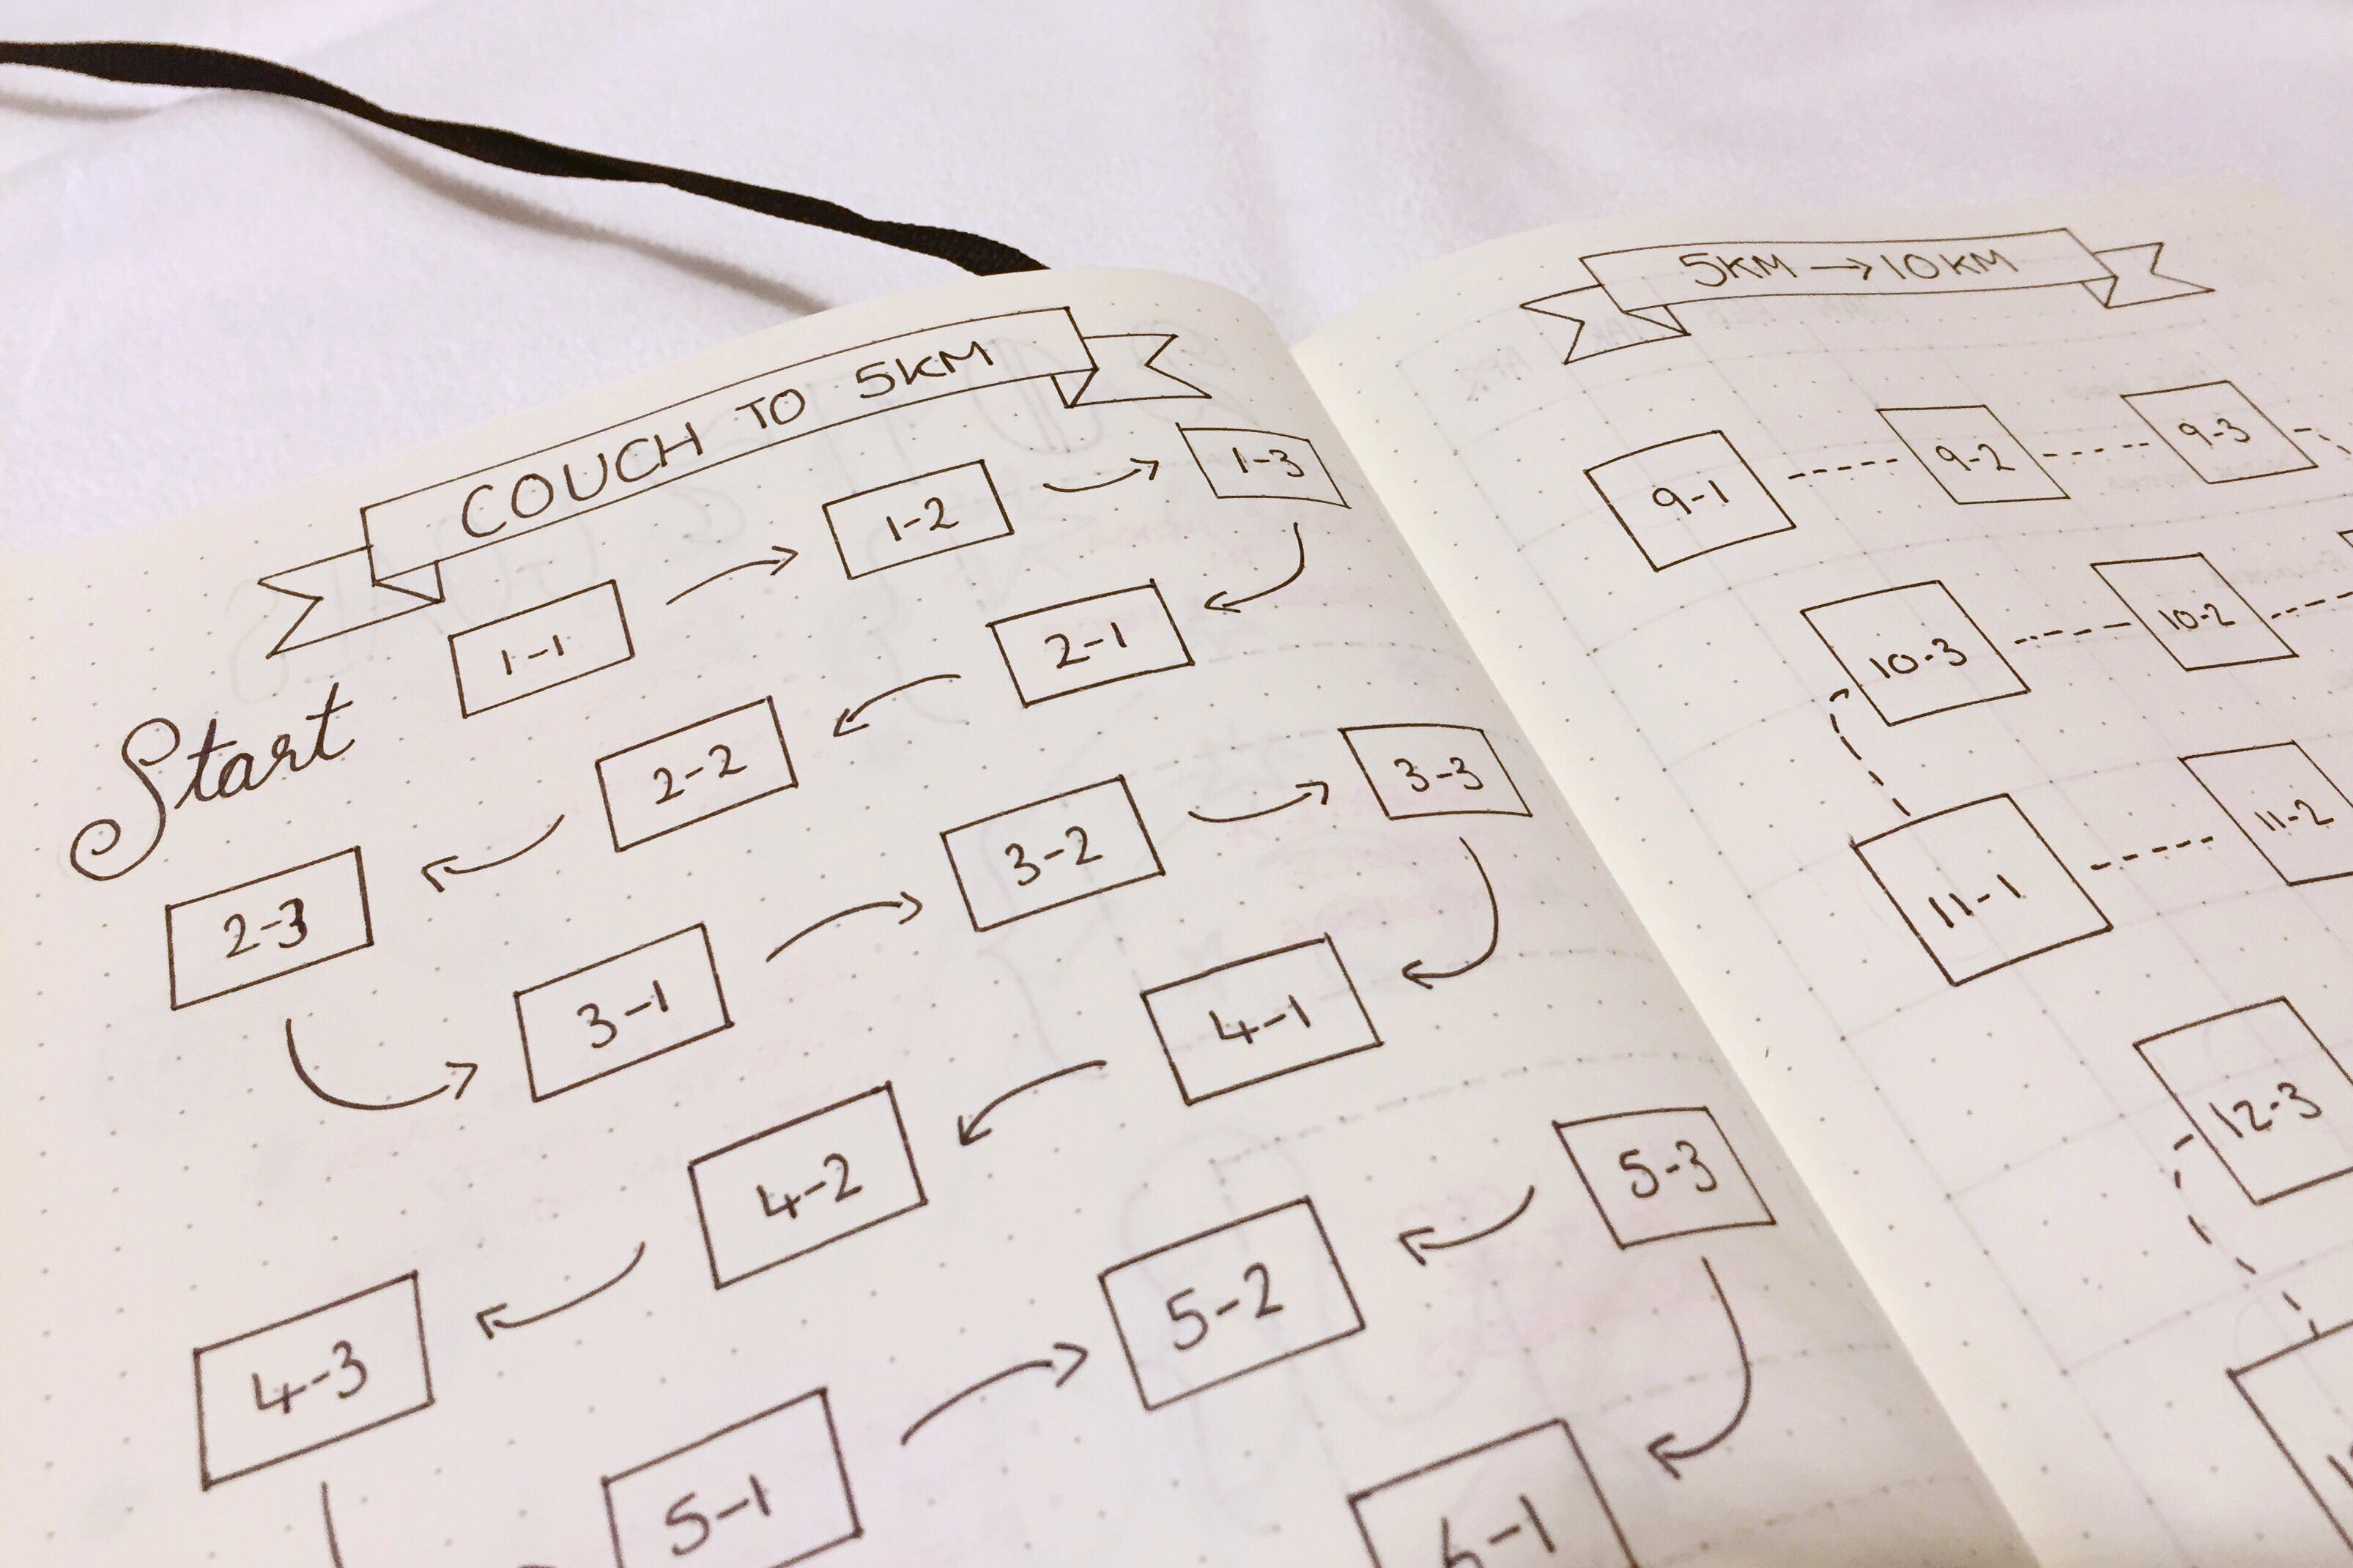 COUCH TO 5KM
Start
1-1
1-2
1-3
2-1
2-2
2-3
3-1
3-2
3-3
4-1
4-2
4-3
5-1
5-2
5-3
6-1
5KM → 10KM
9-1
9-2
9-3
10-3
10-2
11-1
11-2
12-3